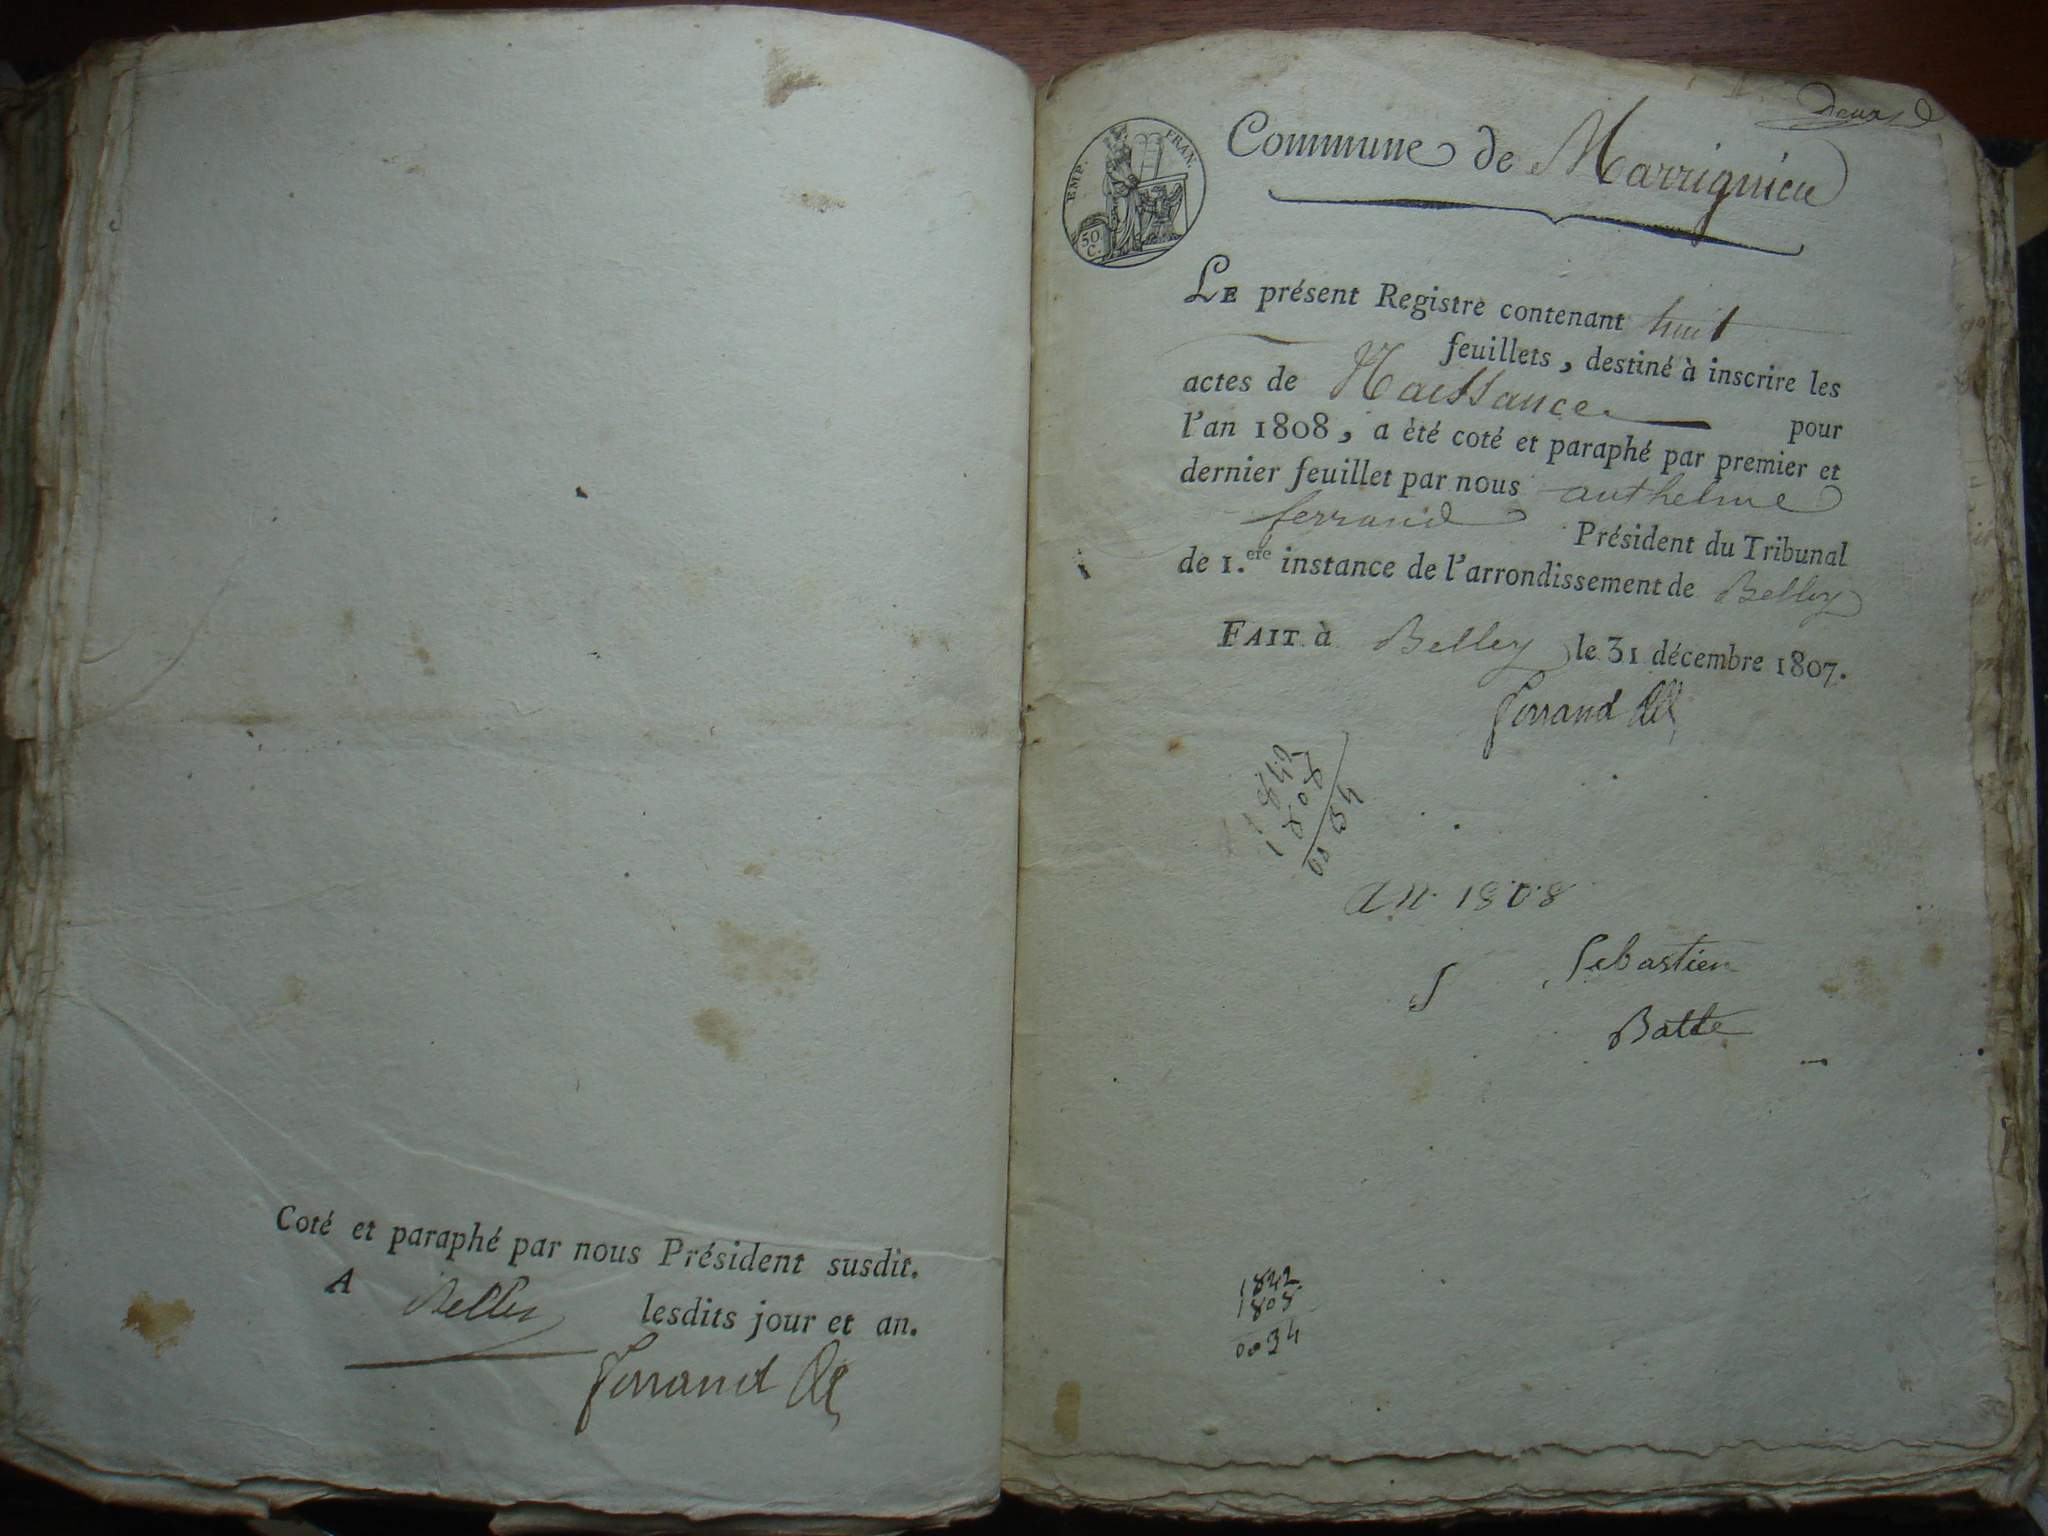 Coté et paraphé par nous Président susdit.
A Belley lesdits jour et an.
Ferrand
EMP. FRAN.
50
C.
Commune de Marrignieu
LE présent Registre contenant huit
feuillets, destiné à inscrire les
actes de Naissance pour
l'an 1808, a èté coté et paraphé par premier et
dernier feuillet par nous anthelme
ferrand Président du Tribunal
de 1.ere instance de l'arrondissement de Belley
FAIT à Belley le 31 décembre 1807.
Ferrand
1808
0034
an 1808
S Sebastien
Batte
1842
1808
0034